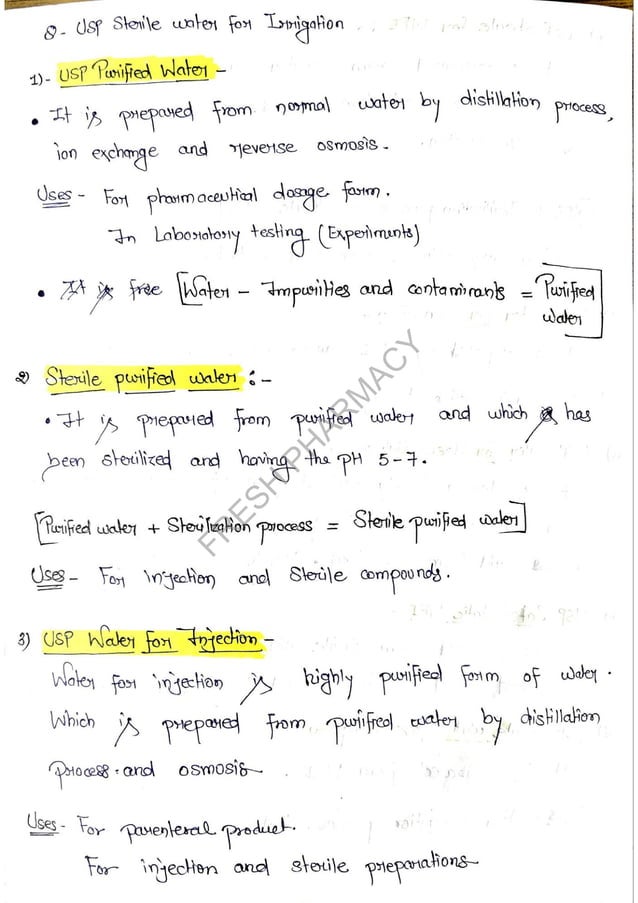 8- USP Sterile water for Irrigation
1)- USP Purified Water -
• It is prepared from normal water by distillation process,
ion exchange and reverse osmosis -
Uses - For pharmaceutical dosage farm.
In Laboratory testing (Experiments)
• It is free [Water - Impurities and contaminants = Purified
Water
2) Sterile purified water :-
• It is prepared from purified water and which has
been sterilized and having the pH 5-7.
[Purified water + Sterilization process = Sterile purified water]
Uses - For injection and Sterile compounds.
3) USP Water for Injection -
Water for injection is highly purified form of water.
Which is prepared from purified water by distillation
process and osmosis
Uses - For parenteral product.
For injection and sterile preparations
FRESH PHARMACY